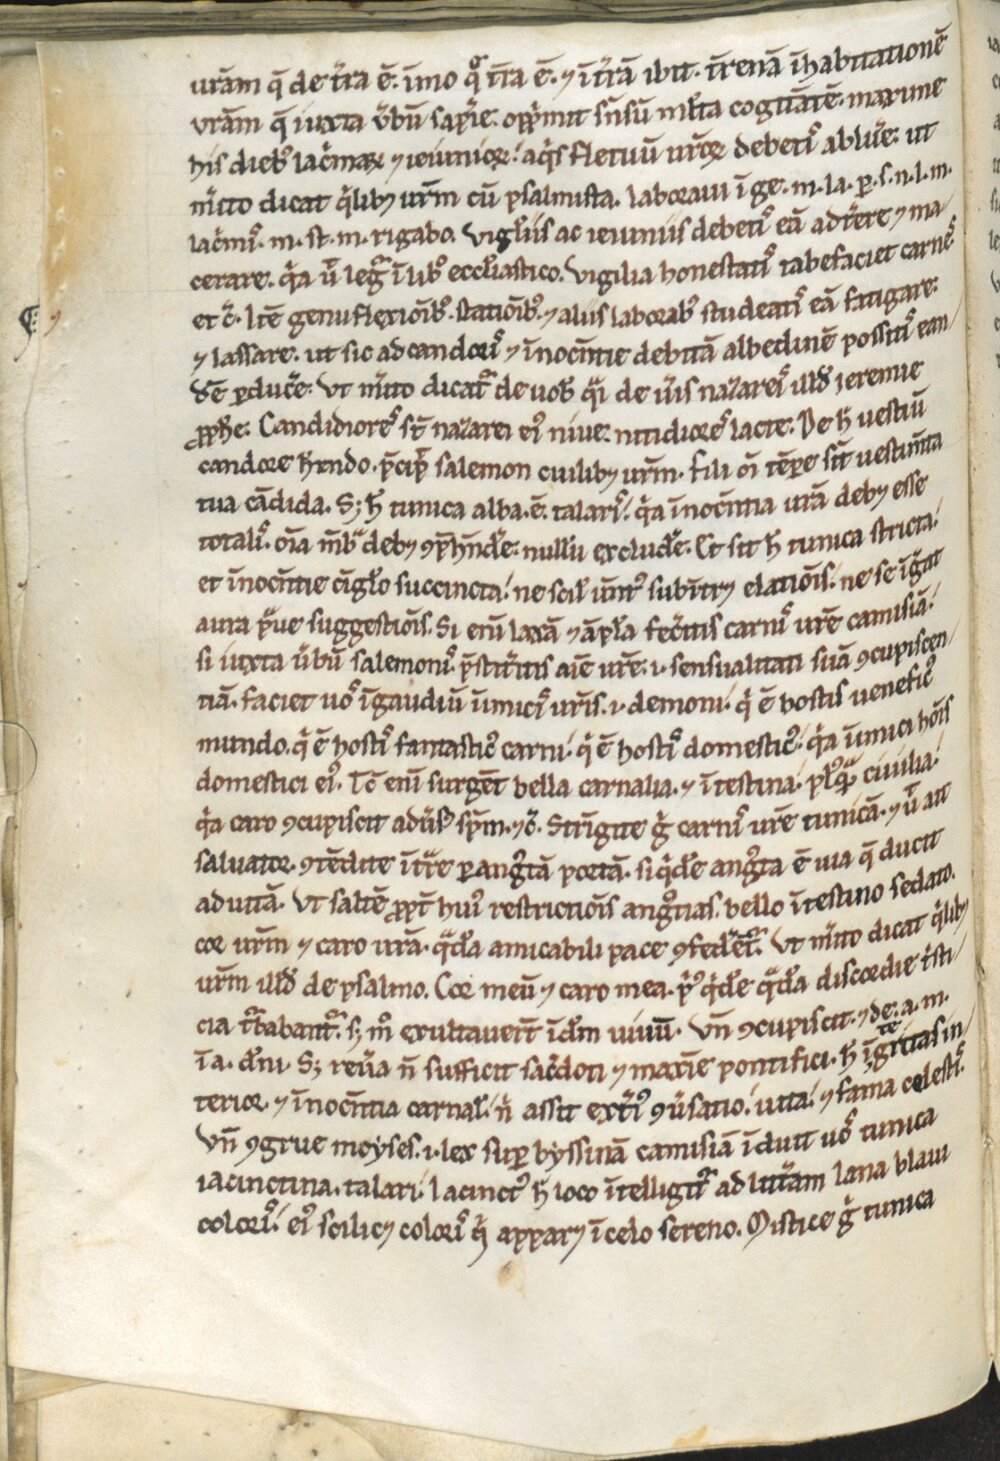 urām q̄ de t̄ra ē. īmo qᵃ t̄ra ē. ⁊ ī t̄rā ibit. t̄renā īhabitationē
vrām q̄ iuxta ūbū sapīe. opp̄mit sn̄sū ml̄ta cogitātē. maxime
his dieb᷒ lac̄maꝝ ⁊ ieiunioꝝ. aq̄s fletuū ur̄oꝝ debetis abluēe. ut
m̄ito dicat q̄libꝫ ur̄m cū psalmista. laboraui ī ge. m. la. ꝑ. s. n. l. m.
lac̄mis. m. st. m. rigabo. Vigiliis ac ieiuniis debetis eā adt̄ere ⁊ ma
cerare. q̄a ut̄ legr̄ ī lib᷒ eccl̄iastico. Vigilia honestatis tabefaciet carnes
et c̄. Itē genuflexiōib᷒. statiōib᷒. ⁊ aliis laborib᷒ studeatis eā fatigare.
⁊ lassare. ut sic ad candorē ⁊ īnocn̄tie debitā albedinē possitis ean
dē ꝑduc̄e. Vt m̄ito dicatr̄ de uob̄ qᵃi de ūis naᵹareis illd̄ jeremie
ꝓph̄e. Candidiores st̄ naᵹarei ei᷒ niue. nitidiores lacte. De h̄ uestiū
candore hn̄do. p̄cip̄ salemon cuilibꝫ ur̄m. fili oī tēpore sīt uestim̄ta
tua cādida. Sꝫ h̄ tunica alba. ē. talaris. q̄a īnocn̄tia urā debꝫ esse
totalis. oīa mb̄ᵃ debꝫ ꝯp̄hn̄de. nullū exclud̄e. Et sit h̄ tunica stricta.
et īnocn̄tie cīgl̄o succincta. ne scil̄ ūnt᷒ subīt̄ꝫ elatiōis. ne se īgāt
aura p̄ue suggestiōis. Si enī laxā ⁊ āpl̄a fec̄itis carnis urē camisiā.
si iuxta ūbū salemonis p̄stit̄itis aīe urē. i. sensualitati suā ꝯcupiscen
tiā. faciet uos ī gaudiū īimicis ur̄is. i. demoni. q̄ ē hostis uenefic᷒
mundo. q̄ ē hostis fantastic᷒ carni. q̄ ē hostis domestic᷒. q̄a īimici hōis
domestici ei᷒. Tc̄ enī surgēt bella carnalia. ⁊ ītestina. pl᷒qᵃ ciuilia.
q̄a caro ꝯcupiscit adūs᷒ sp̄m. ⁊c̄. Strīgite g̊ carnis urē tunicā. ⁊ ut̄ ait
saluator. ꝯtēdite ītrāe ꝑ angᵘtā portā. siq̄de angᵘta ē uia q̄ ducit
ad uitā. Vt saltē ꝓpt̄ hui᷒ restrictiōis angᵘtias. bello ītestino sedato.
cor urm̄ ⁊ caro urā. qᵃdā amicabili pace ꝯfedētr̄. Vt m̄ito dicat q̄libꝫ
urm̄ illd̄ de psalmo. Cor meū ⁊ caro mea. p̄᷒ q̄de qᵃdā discordie t̄sti
cia t̄babant̄. sꝫ m̊ exultauert̄ ī dm̄ uiuū. Vn̄ ꝯcupiscit. ⁊ de. a. m.
ī a. dn̄i. Sꝫ reūa n̄ sufficit sac̄doti ⁊ maxīe pontifici. h̄ īteg̃ritas in
terior. ⁊ īnocn̄tia carnal̄. n̄ assit ext̄ior ꝯūsatio. uita. ⁊ fama celestis.
Vn̄ ꝯgrue moyses. i. lex suꝑ byssinā camisiā īduit uos tunica
iacinctina. talari. Iacinct᷒ h̄ loco ītelligitr̄ ad litt̄am lana blaui
coloris. ei᷒ scilicꝫ coloris q̄ apparꝫ ī celo sereno. Mistice g̊ tunica